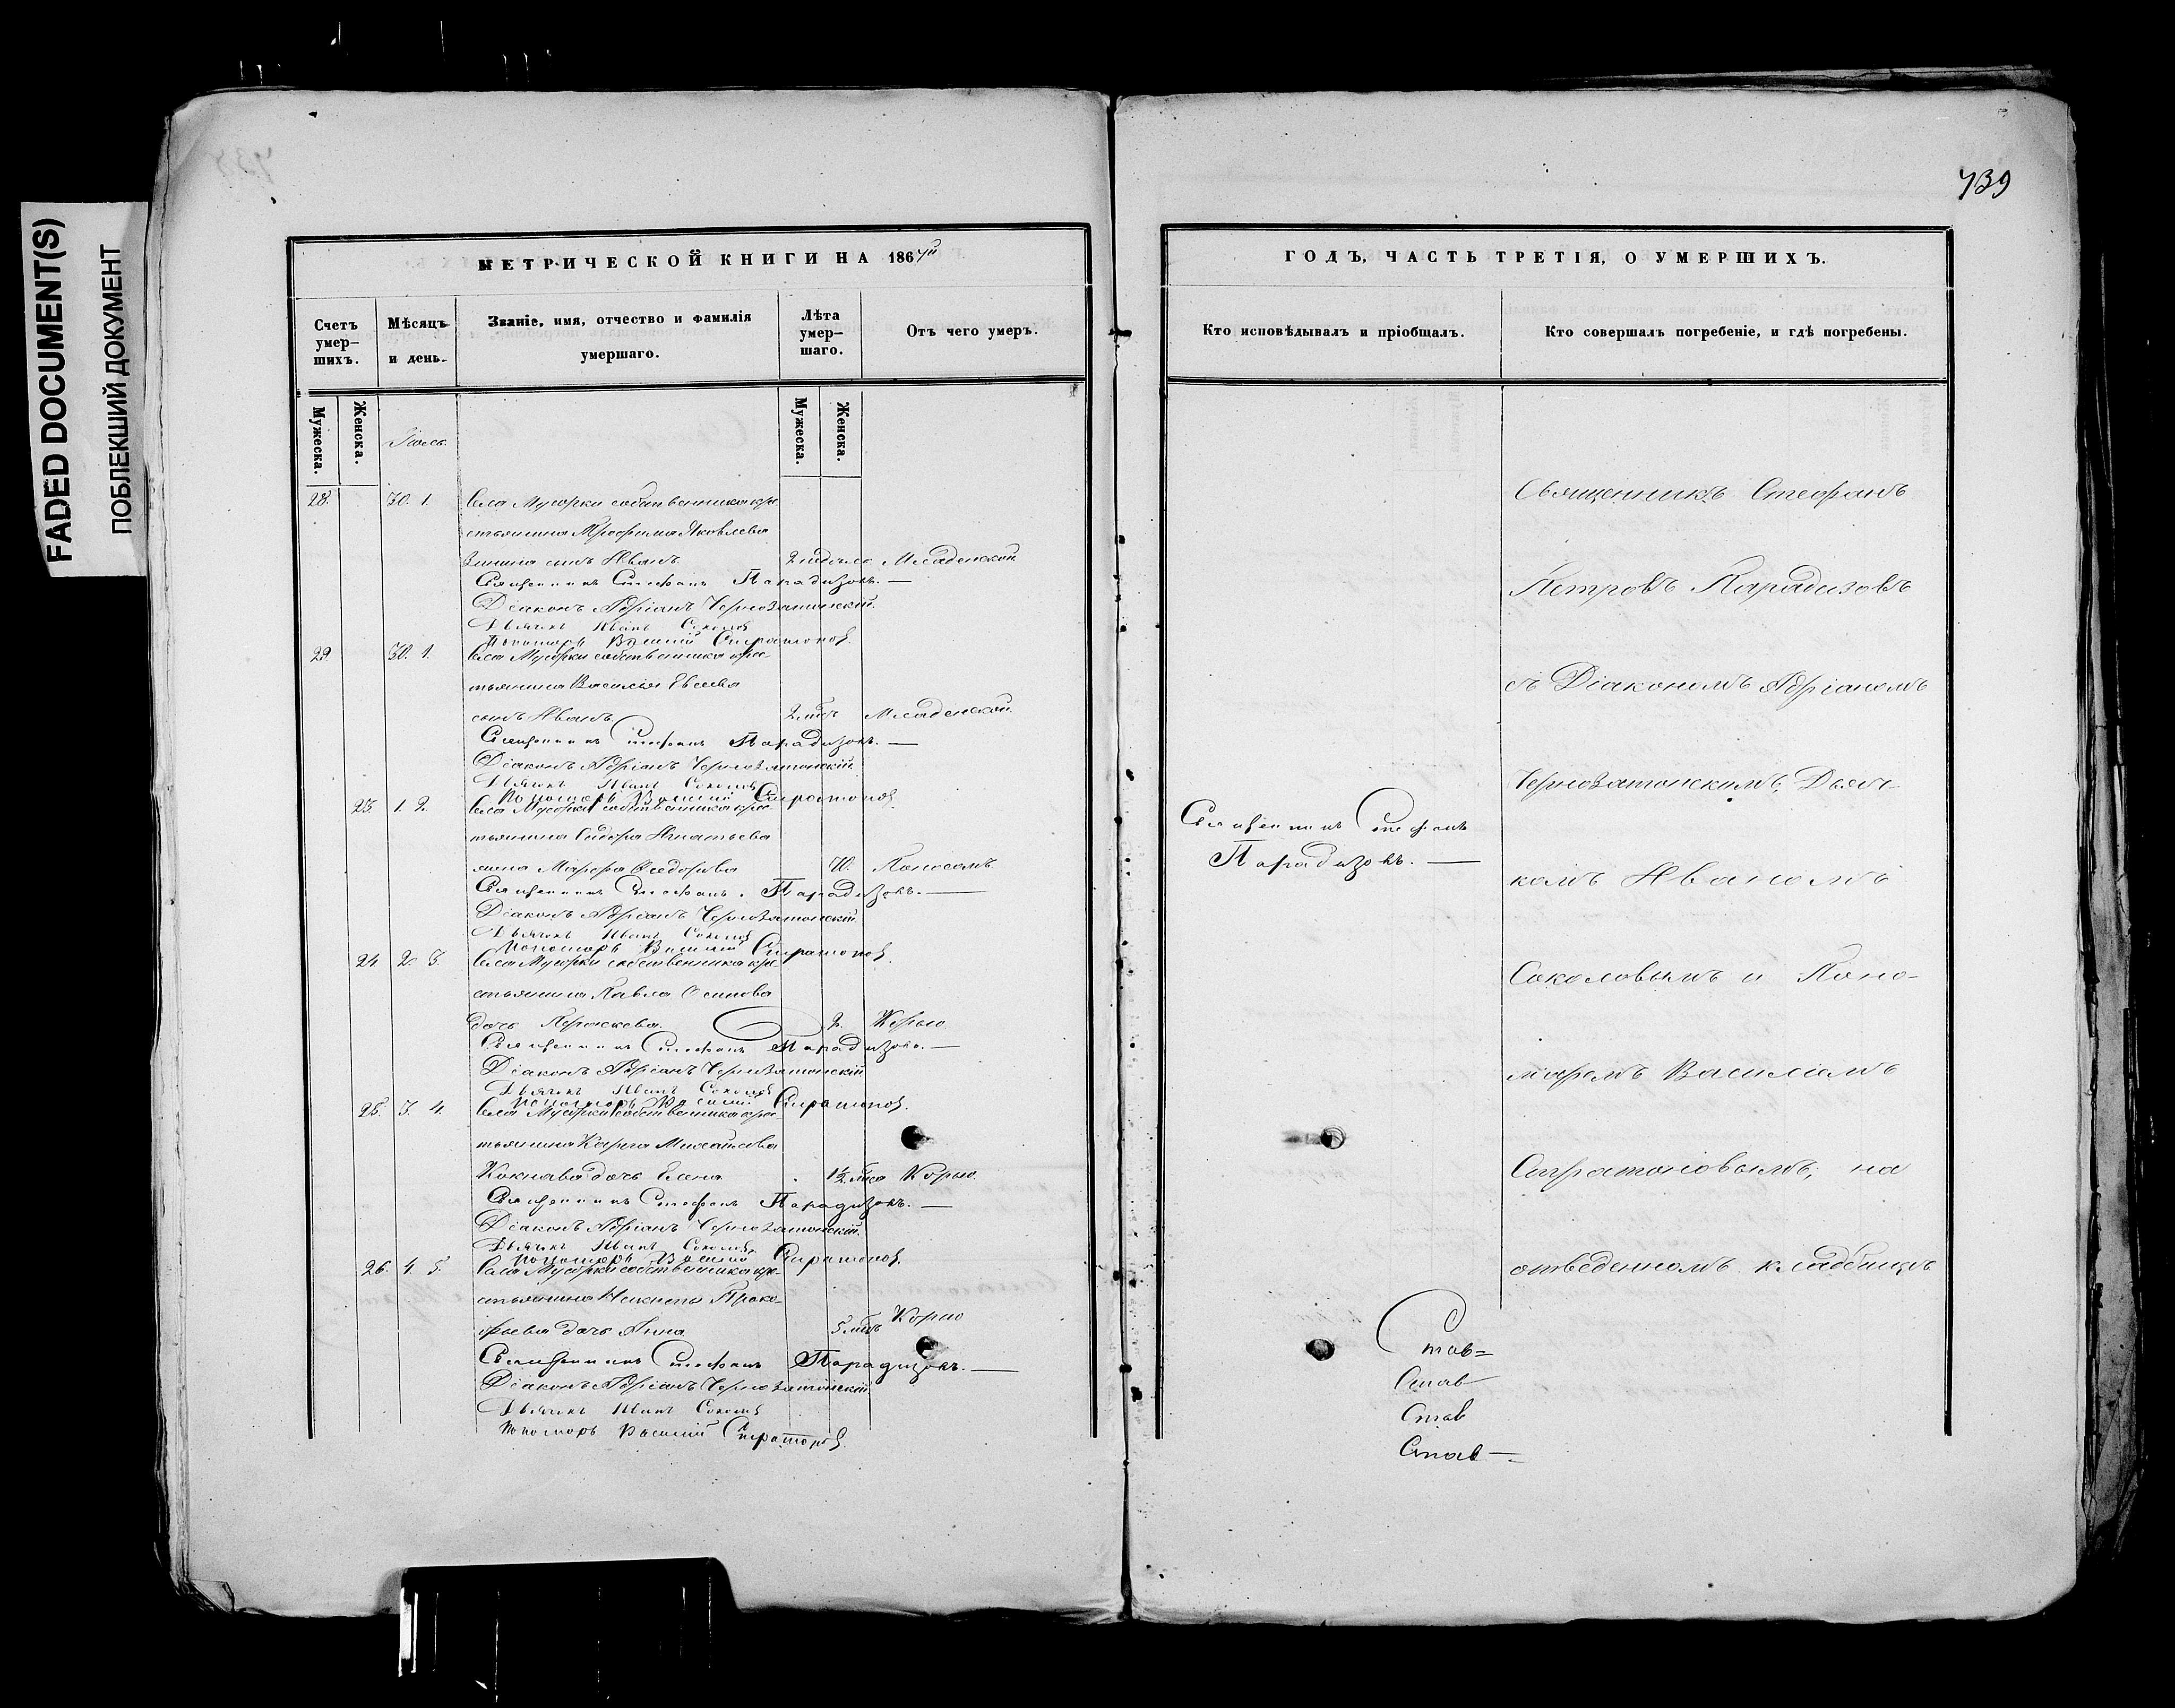 FADED DOCUMENT(S)
ПОБЛЕКШИЙ ДОКУМЕНТ
МЕТРИЧЕСКОЙ КНИГИ НА 1867й
Счетъ умер–шихъ.
Мѣсяцъ и день.
Званіе, имя, отчество и фамилія умершаго.
Лѣта умер–шаго.
Отъ чего умеръ.
Мужеска.
Женска.
Мужеска.
Женска.
28. 30. 1. Села Мусорки собственника кре
стьянина Трофима Яковлева
сынъ Иванъ Младенской
Священникъ Стефанъ Парадизовъ.—
Діаконъ Адріанъ Чернозатонскій
Дьячекъ Иванъ Соколов
Пономарь Василий Стратонов
29 30. 1. Села Мусорки собственника кре–
тьянина Василья Евсеева
сынъ Иванъ Младенской
Священникъ Стефанъ Парадизовъ.—
Діаконъ Адріанъ Чернозатонскій
Дьячекъ Иванъ Соколов
Пономарь Василий Стратонов.
23. 1. 2. Села Мусорки собственника кре–
тьянина Сидора Игнатьева
жена Марфа Федорова 70. Поносомъ
Священникъ Стефанъ Парадизовъ.—
Діаконъ Адріанъ Чернозатонскій
Дьячекъ Иванъ Соколов
Пономарь Василий Стратонов.
24. 2. 3. Села Мусорки собственника кре
стьянина Павла Осипова
дочь 2. Корью
Священникъ Стефанъ Парадизовъ.—
Діаконъ Адріанъ Чернозатонскій
Дьячекъ Иванъ Соколов
Пономарь Василий Стратонов.
25. 3. 4. Села Мусорки собственника кре
тьянина Карпа Михайлова
дочь Елена 1½ Корью
Священникъ Стефанъ Парадизовъ.—
Діаконъ Адріанъ Чернозатонскій
Дьячекъ Иванъ Соколов
Пономарь Василий Стратонов.
26. 4. 5. Села Мусорки собственника кре–
стьянина Никиты Проко–
фьева дочь Анна 5 Корью
Священникъ Стефанъ Парадизовъ.—
Діаконъ Адріанъ Чернозатонскій
Дьячекъ Иванъ Соколов
Пономарь Василий Стратонов.
739
ГОДЪ, ЧАСТЬ ТРЕТІЯ, О УМЕРШИХЪ.
Кто исповѣдывалъ и пріобщалъ.
Кто совершалъ погребеніе, и гдѣ погребены.
Священникъ Стефанъ
Парадизовъ.—
Священникъ Стефанъ
Петровъ Парадизовъ
съ Діакономъ Адріаномъ
Чернозатонскимъ, Дьяч–
комъ Иваномъ
Соколовымъ и Поно–
маремъ Василіемъ
Стратоновымъ, на
отведенномъ кладбищѣ
Став=
Став
Став
Став—